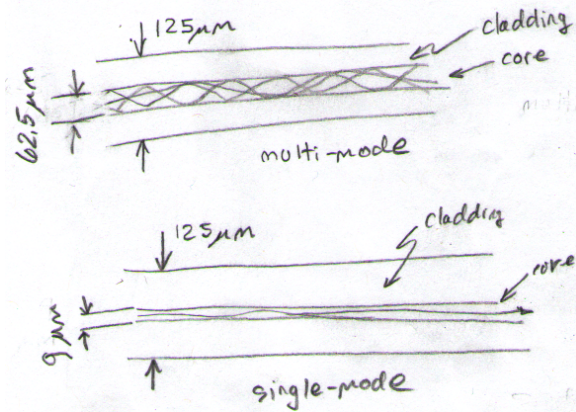 125μm
cladding
core
62.5μm
multi-mode
125μm
cladding
core
9 μm
single-mode